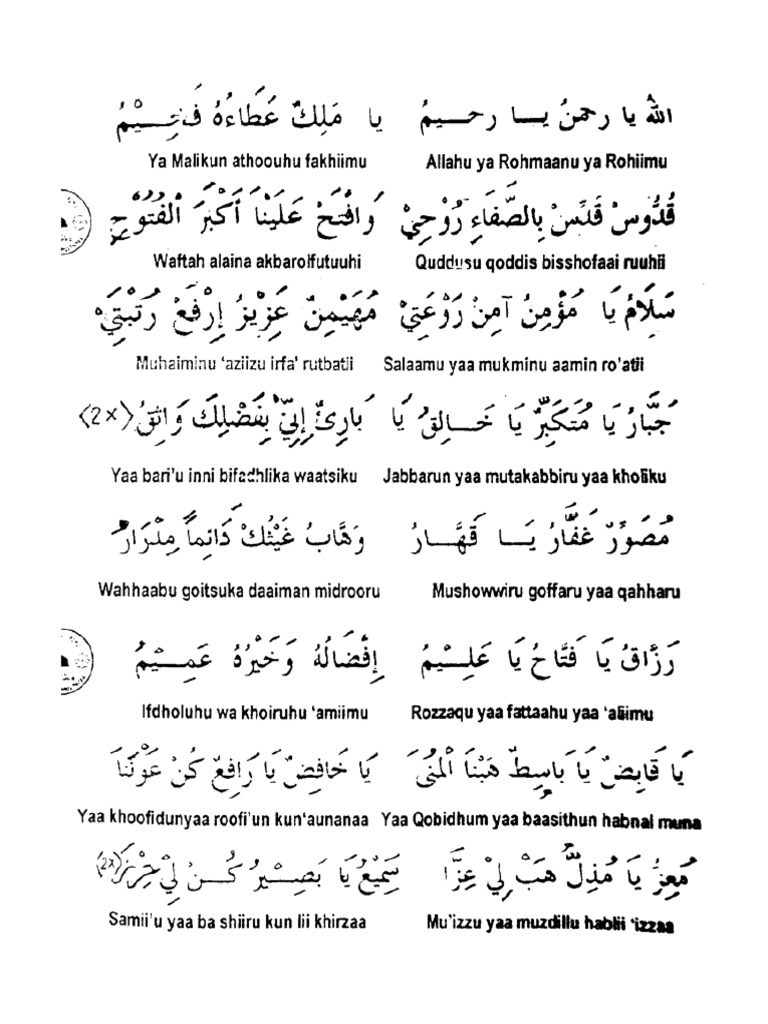 اللهُ يا رحمنُ يا رحيمُ يا مَلِكٌ عَطَاءُهُ فَخِيْمُ
Allahu ya Rohmaanu ya Rohiimu Ya Malikun athoouhu fakhiimu
قُدُّوسُ قَدِّسْ بِالصَّفَاءِ رُوْحِيْ وَافْتَحْ عَلَيْنَا أَكْبَرَ الْفُتُوْحِ
Quddusu qoddis bisshofaai ruuhii Waftah alaina akbarolfutuuhi
سَلَامُ يَا مُؤْمِنُ آمِنْ رَوْعَتِيْ مُهَيْمِنٌ عَزِيْزُ إِرْفَعْ رُتْبَتِيْ
Salaamu yaa mukminu aamin ro'atii Muhaiminu 'aziizu irfa' rutbatii
جَبَّارُ يَا مُتَكَبِّرٌ يَا خَالِقُ يَا بَارِئُ إِنِّيْ بِفَضْلِكَ وَاثِقُ (2x)
Jabbarun yaa mutakabbiru yaa kholiku Yaa bari'u inni bifadhlika waatsiku
مُصَوِّرٌ غَفَّارُ يَا قَهَّارُ وَهَّابُ غَيْثُكَ دَائِماً مِدْرَارُ
Mushowwiru goffaru yaa qahharu Wahhaabu goitsuka daaiman midrooru
رَزَّاقُ يَا فَتَّاحُ يَا عَلِيْمُ إِفْضَالُهُ وَخَيْرُهُ عَمِيْمُ
Rozzaqu yaa fattaahu yaa 'aliimu Ifdholuhu wa khoiruhu 'amiimu
يَا قَابِضٌ يَا بَاسِطٌ هَبْنَا الْمُنَى يَا خَافِضٌ يَا رَافِعٌ كُنْ عَوْنَنَا
Yaa Qobidhum yaa baasithun habnal muna Yaa khoofidunyaa roofi'un kun'aunanaa
مُعِزُّ يَا مُذِلُّ هَبْ لِيْ عِزَّا سَمِيْعُ يَا بَصِيْرُ كُنْ لِيْ حِرْزَا (2x)
Mu'izzu yaa muzdillu hablii 'izzaa Samii'u yaa ba shiiru kun lii khirzaa